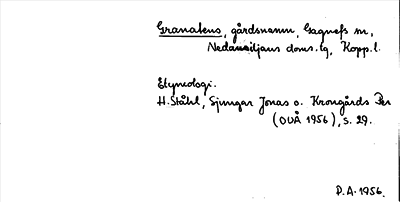 Granatens, gårdsnamn, Gagnefs sn,
Nedansiljans doms.tg, Kopp.l.
Etymologi.
H. Ståhl, Sjungar Jonas o. Krongårds Per
(DUÅ 1956), s. 29.
D.A. 1956.